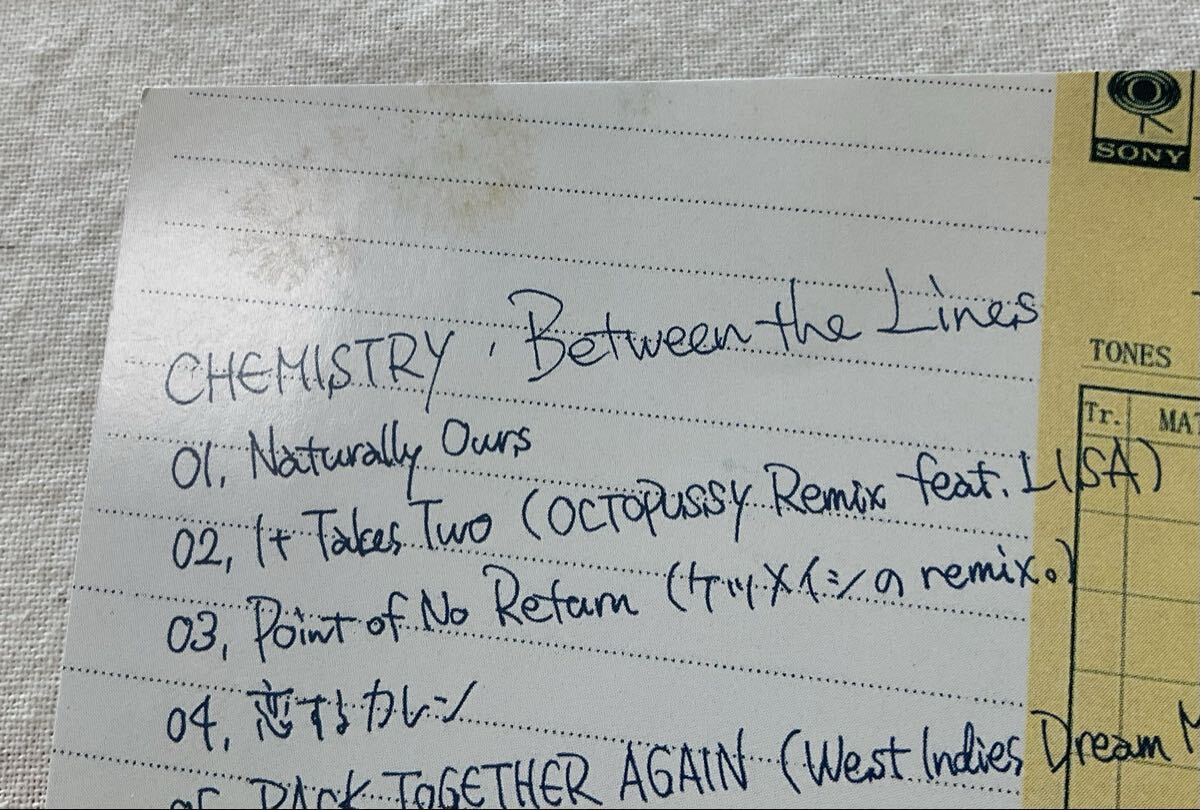 SONY
CHEMISTRY, Between the Lines
TONES
Tr. MAT
01, Naturally Ours
02, It Takes Two (OCTOPUSSY Remix feat. LISA)
03, Point of No Return (ケツメイシの remix。)
04, 恋するカレン
05 BACK TOGETHER AGAIN (West Indies Dream M